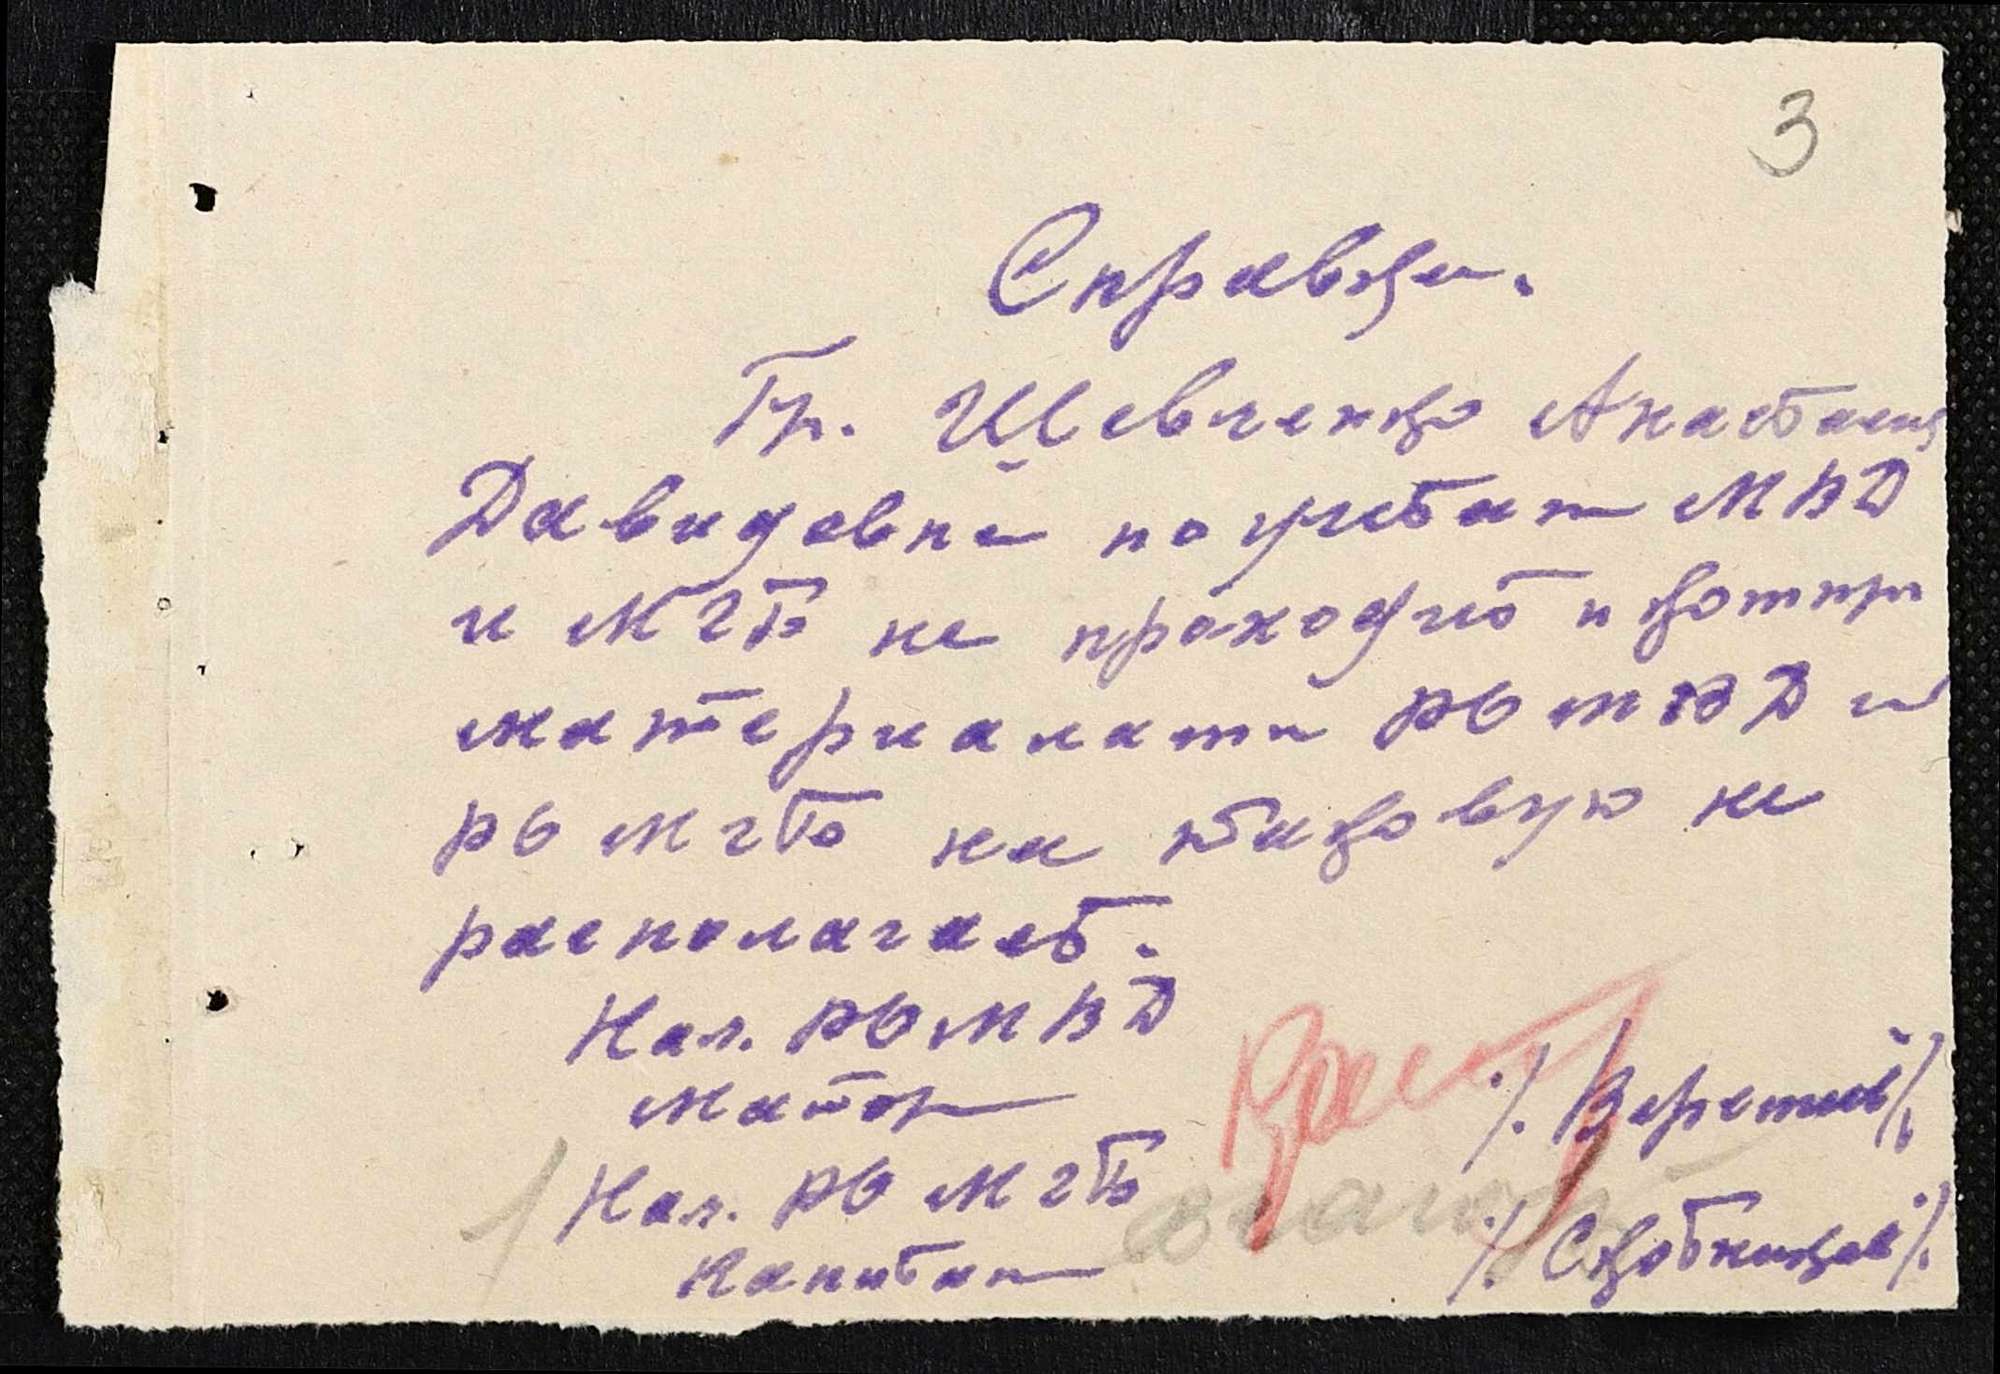 3
Справка.
Гр. Шевченко Анастасия
Давидовна по учетам МВД
и МГБ не проходит и компр
материалами РО МВД и
РО МГБ на таковую не
располагает.
Нач. РО МВД
майор /. Веремий /.
Нач. РО МГБ
Капитан /. Скотницкий /.